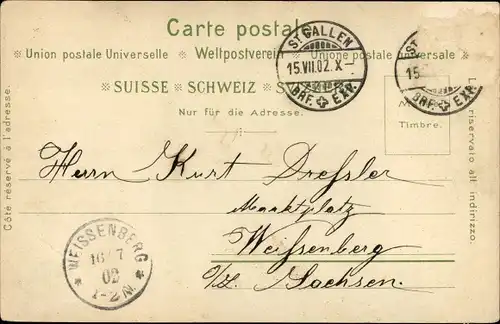 Carte postale
Union postale Universelle ※ Weltpostverein ※ Unione postale universale
※ SUISSE ※ SCHWEIZ ※
Nur für die Adresse.
Côté réservé à l'adresse.
Lato riservato all indirizzo.
Timbre.
ST. GALLEN
15.VII.02.X-
BRF. EXP.
15.
BRF. EXP.
Herrn Kurt Dreßler
Marktplatz
Weißenberg
i/s. Sachsen.
WEISSENBERG
16 7
02
1-2 N.